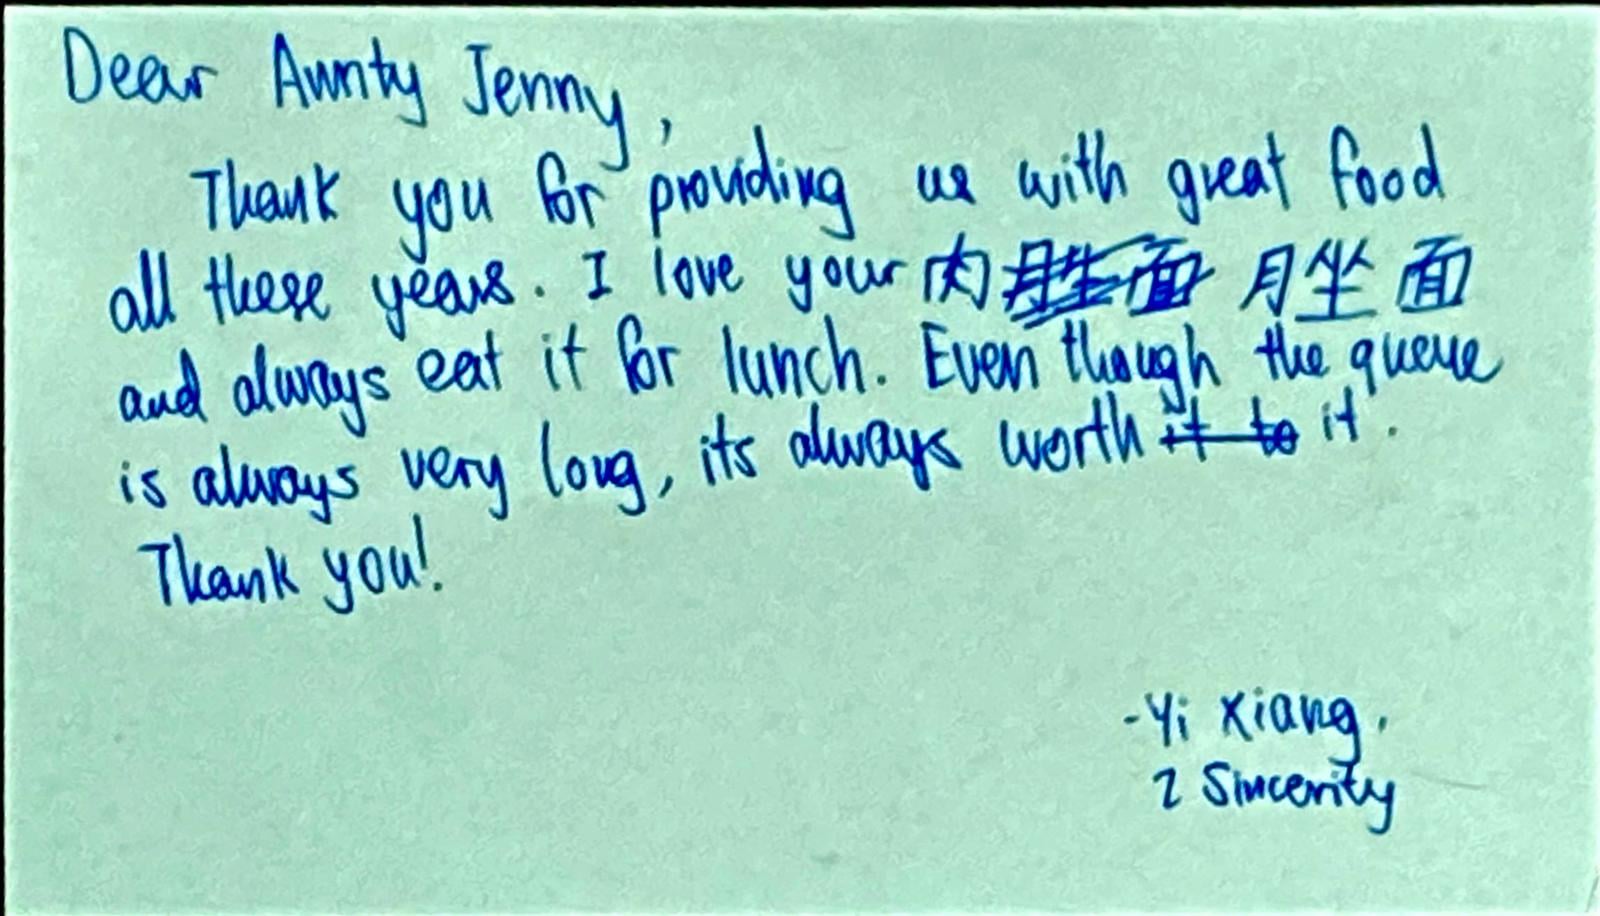 Dear Aunty Jenny,
Thank you for providing us with great food
all these years. I love your 肉脞面
and always eat it for lunch. Even though the queue
is always very long, its always worth it.
Thank you!
-Yi Xiang.
2 Sincerity